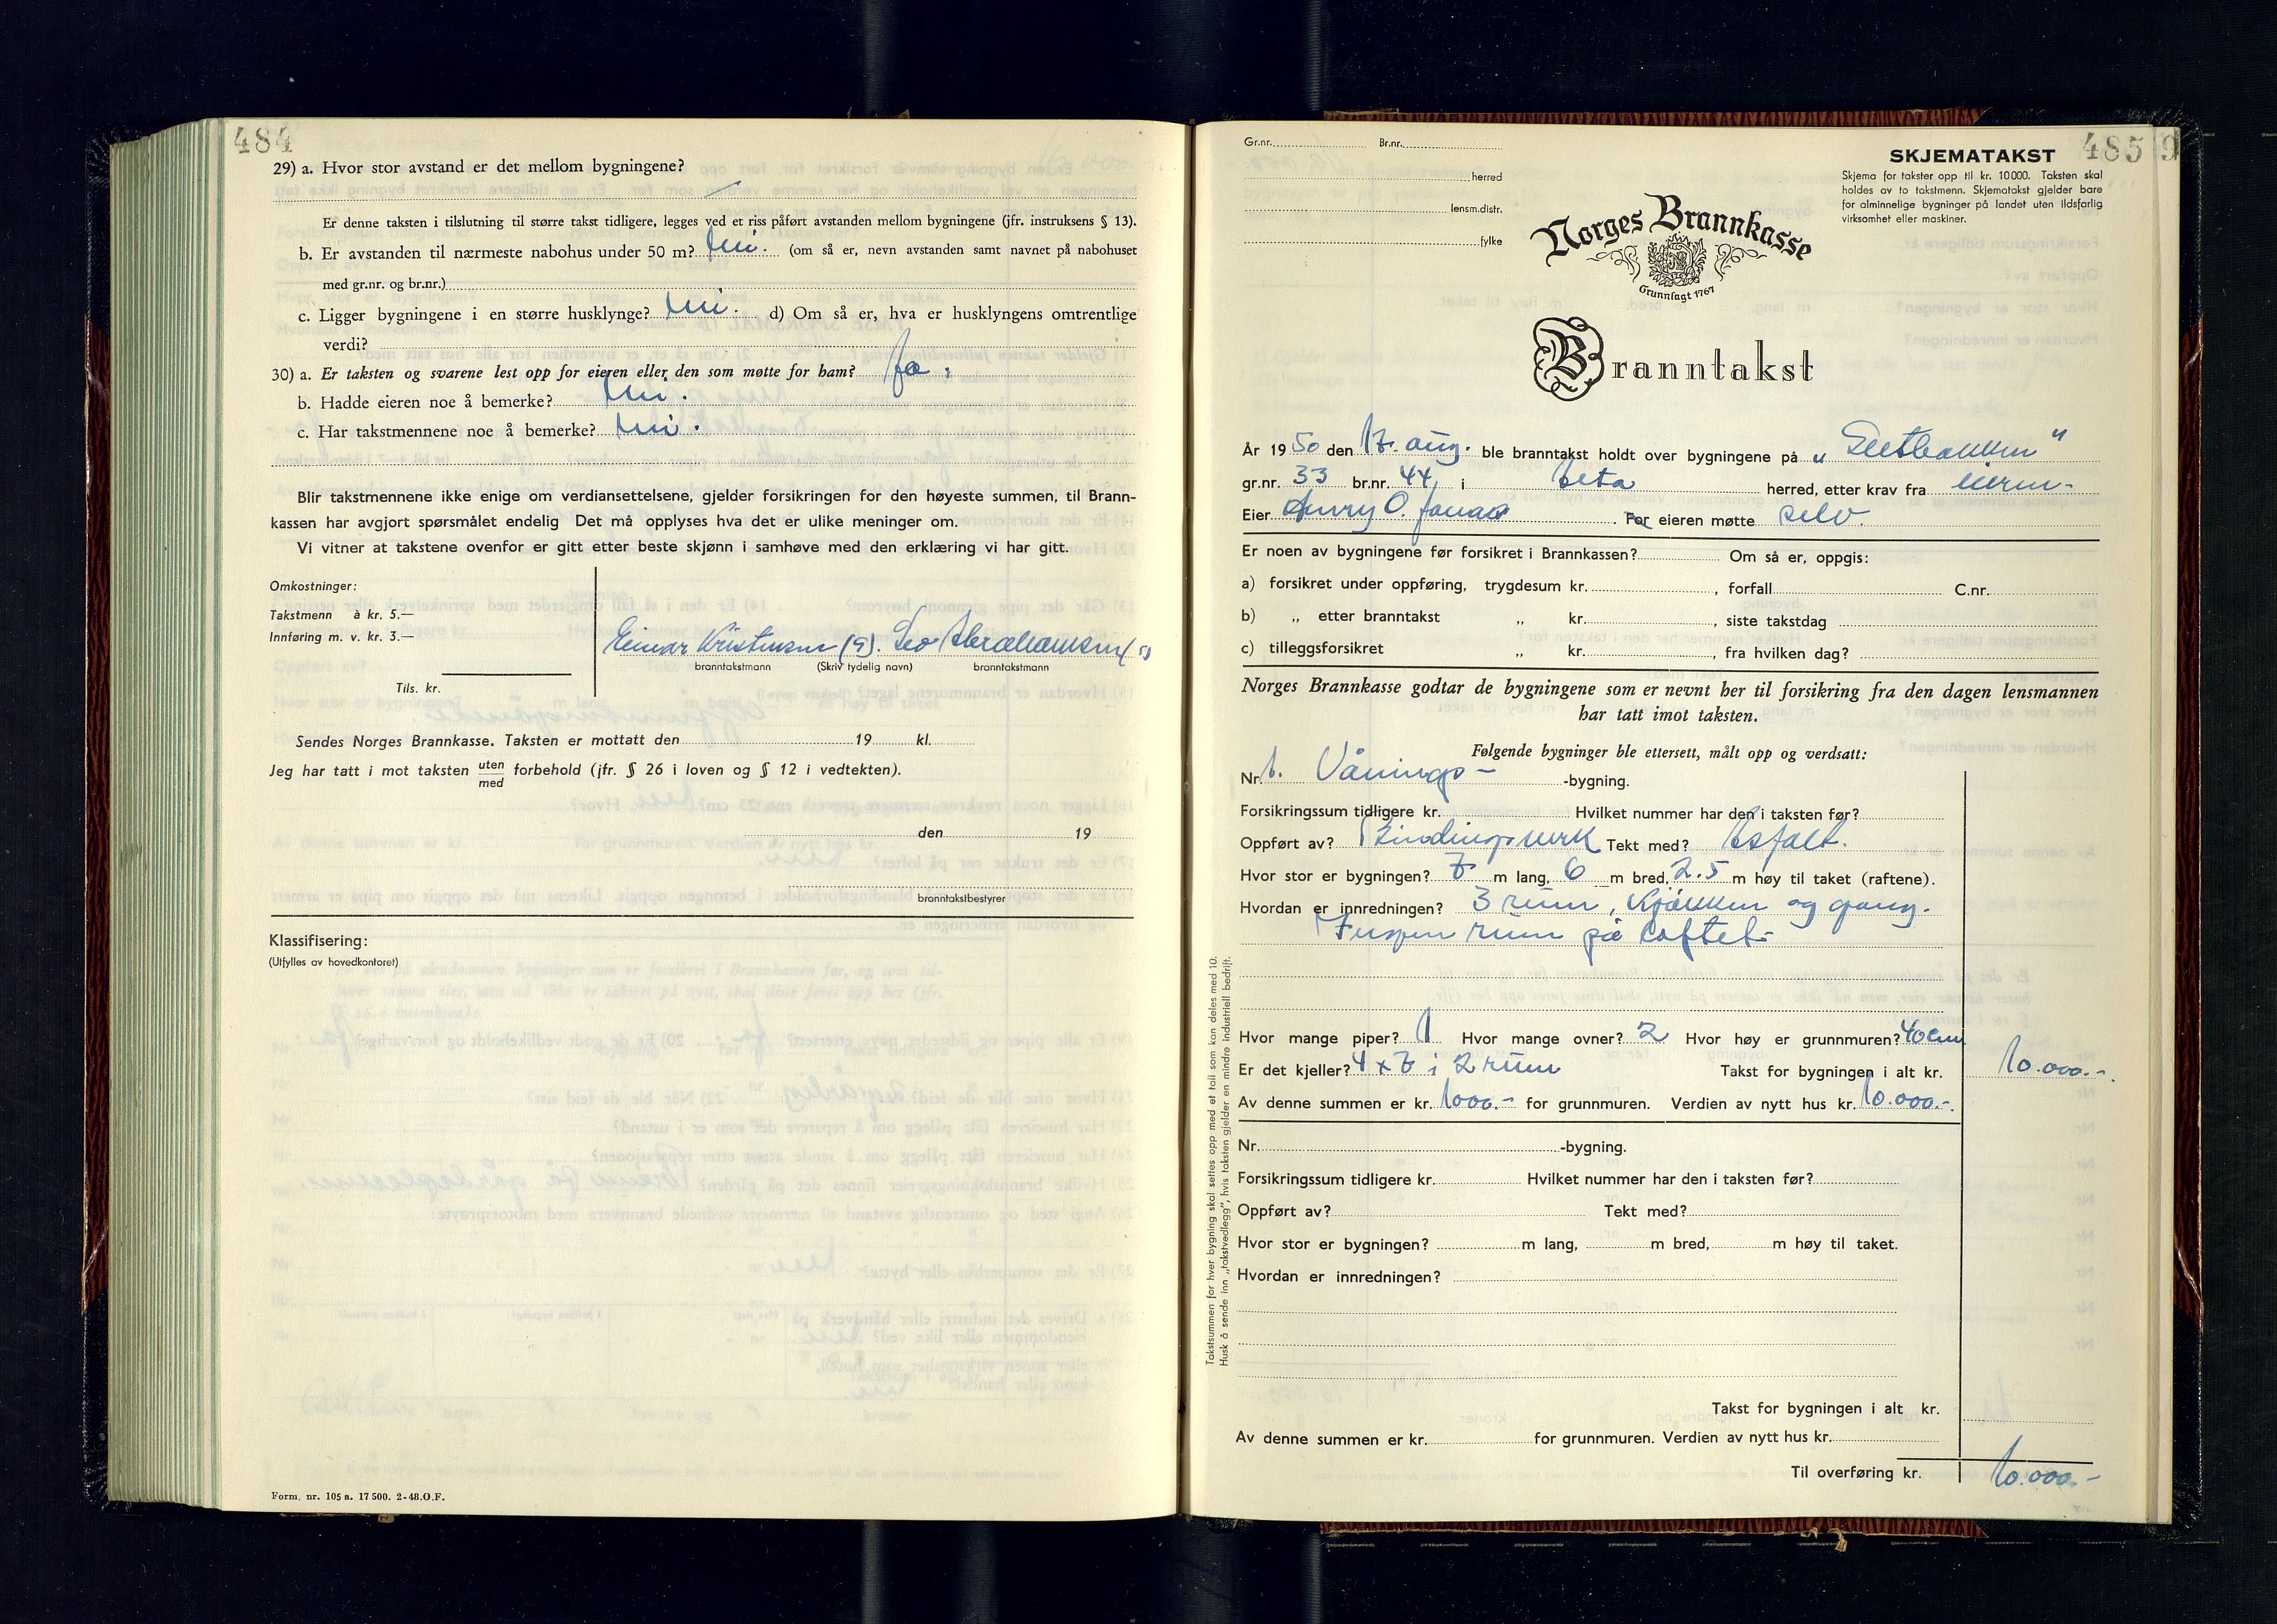 484
29) a. Hvor stor avstand er det mellom bygningene?
Er denne taksten i tilslutning til større takst tidligere, legges ved et riss påført avstanden mellom bygningene (jfr. instruksens § 13).
b. Er avstanden til nærmeste nabohus under 50 m? Nei. (om så er, nevn avstanden samt navnet på nabohuset
med gr.nr. og br.nr.)
c. Ligger bygningene i en større husklynge? Nei. d) Om så er, hva er husklyngens omtrentlige
verdi?
30) a. Er taksten og svarene lest opp for eieren eller den som møtte for ham? Ja.
b. Hadde eieren noe å bemerke? Nei.
c. Har takstmennene noe å bemerke? Nei.
Blir takstmennene ikke enige om verdiansettelsene, gjelder forsikringen for den høyeste summen, til Brann-
kassen har avgjort spørsmålet endelig Det må opplyses hva det er ulike meninger om.
Vi vitner at takstene ovenfor er gitt etter beste skjønn i samhøve med den erklæring vi har gitt.
Omkostninger:
Takstmenn à kr. 5.—
Innføring m. v. kr. 3.—
Tils. kr.
Einar Kristensen (s). Leo Abrahamsen (s)
branntakstmann (Skriv tydelig navn) branntakstmann
Sendes Norges Brannkasse. Taksten er mottatt den 19 kl.
Jeg har tatt i mot taksten uten/med forbehold (jfr. § 26 i loven og § 12 i vedtekten).
den 19
branntakstbestyrer
Klassifisering:
(Utfylles av hovedkontoret)
Form. nr. 105 a. 17 500. 2-48.O.F.
485 9
Gr.nr. Br.nr.
herred
lensm.distr.
fylke
SKJEMATAKST
Skjema for takster opp til kr. 10000. Taksten skal
holdes av to takstmenn. Skjematakst gjelder bare
for alminnelige bygninger på landet uten ildsfarlig
virksomhet eller maskiner.
Norges Brannkasse
Grunnlagt 1767
Branntakst
År 1950 den 17. aug. ble branntakst holdt over bygningene på
gr.nr. 33 br.nr. 44 i herred, etter krav fra eieren-
Eier Henry O. For eieren møtte selv.
Er noen av bygningene før forsikret i Brannkassen? Om så er, oppgis:
a) forsikret under oppføring, trygdesum kr. , forfall C.nr.
b) „ etter branntakst „ kr. , siste takstdag
c) tilleggsforsikret „ kr. , fra hvilken dag?
Norges Brannkasse godtar de bygningene som er nevnt her til forsikring fra den dagen lensmannen
har tatt imot taksten.
Følgende bygninger ble ettersett, målt opp og verdsatt:
Nr. 1. Vånings- -bygning.
Forsikringssum tidligere kr. Hvilket nummer har den i taksten før?
Oppført av? Bindingsverk Tekt med? Asfalt.
Hvor stor er bygningen? 7 m lang, 6 m bred, 2.5 m høy til taket (raftene).
Hvordan er innredningen? 3 rum, kjøkken og gang.
Ingen rum på loftet-
Hvor mange piper? 1 Hvor mange ovner? 2 Hvor høy er grunnmuren? 40cm
Er det kjeller? 4 x 7 i 2 rum Takst for bygningen i alt kr. 10.000.-
Av denne summen er kr. 1000.- for grunnmuren. Verdien av nytt hus kr. 10.000.-.
Nr. -bygning.
Forsikringssum tidligere kr. Hvilket nummer har den i taksten før?
Oppført av? Tekt med?
Hvor stor er bygningen? m lang, m bred, m høy til taket.
Hvordan er innredningen?
Takst for bygningen i alt kr.
Av denne summen er kr. for grunnmuren. Verdien av nytt hus kr.
Til overføring kr. 10.000.-
Takstsummen for hver bygning skal settes opp med et tall som kan deles med 10.
Husk å sende inn „takstvedlegg“, hvis taksten gjelder en mindre industriell bedrift.